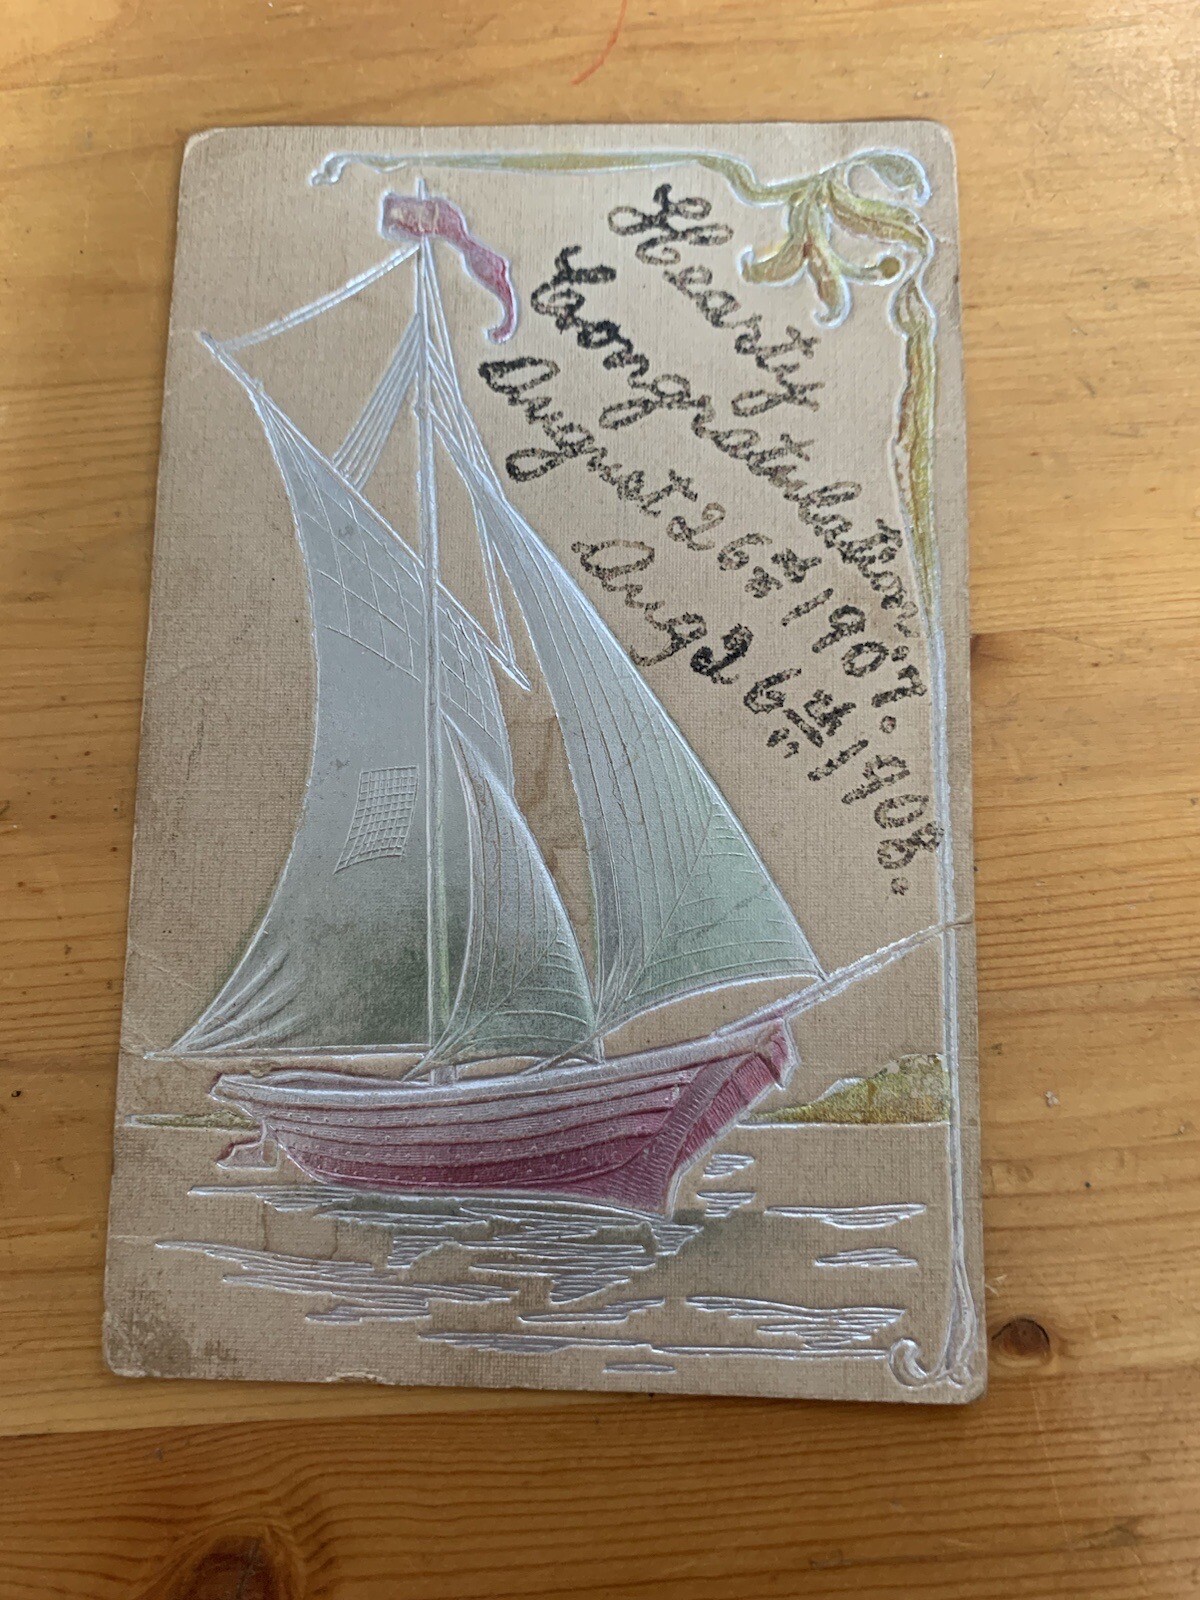 Hearty
Congratulation
August 26th 1907.
Aug 26th 1908.